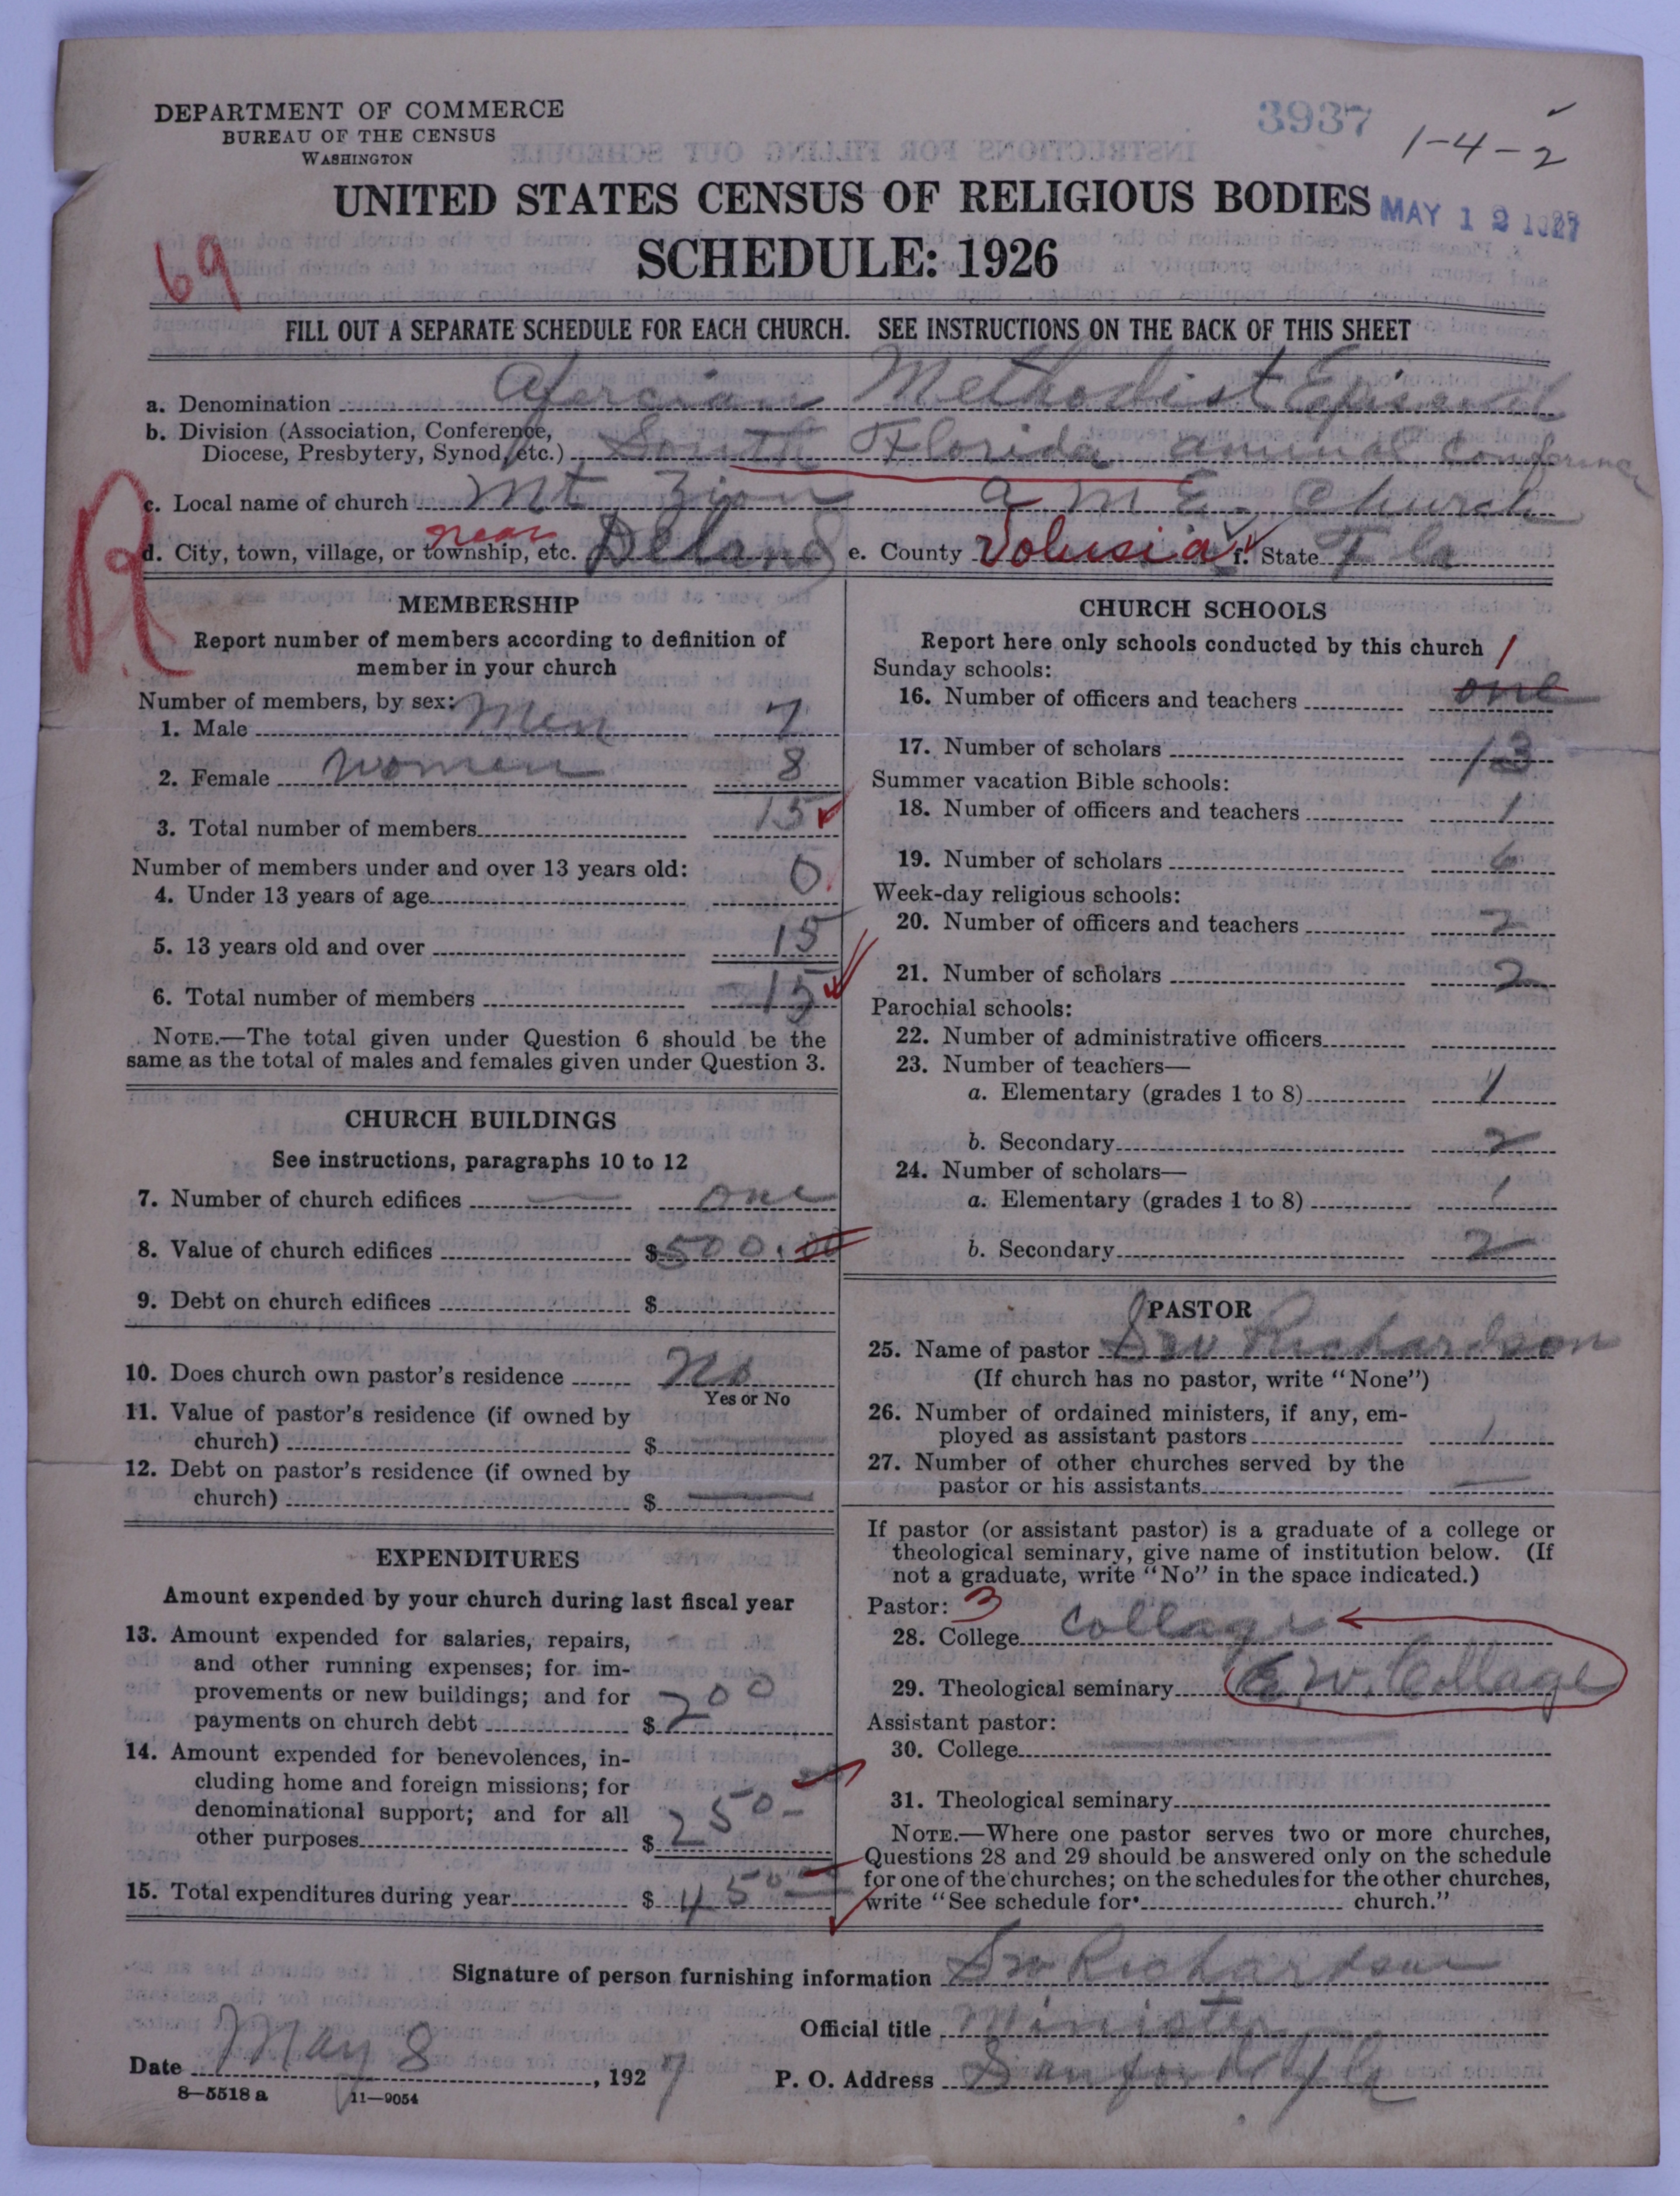 DEPARTMENT OF COMMERCE
BUREAU OF THE CENSUS
WASHINGTON
3937
1-4-2
UNITED STATES CENSUS OF RELIGIOUS BODIES
MAY 12 1927
SCHEDULE: 1926
69
FILL OUT A SEPARATE SCHEDULE FOR EACH CHURCH. SEE INSTRUCTIONS ON THE BACK OF THIS SHEET
a. Denomination Afercian Methodist Episcal
b. Division (Association, Conference,
Diocese, Presbytery, Synod, etc.) South Florida annual conference
c. Local name of church Mt Zion a. M. E. Church
near
d. City, town, village, or township, etc. Deland e. County Volusia f. State Fla
R
MEMBERSHIP
Report number of members according to definition of
member in your church
Number of members, by sex:
1. Male Men 7
2. Female women 8
3. Total number of members 15
Number of members under and over 13 years old:
4. Under 13 years of age 0
5. 13 years old and over 15
6. Total number of members 15
NOTE.—The total given under Question 6 should be the
same as the total of males and females given under Question 3.
CHURCH BUILDINGS
See instructions, paragraphs 10 to 12
7. Number of church edifices one
8. Value of church edifices $500.00
9. Debt on church edifices $
10. Does church own pastor's residence No
Yes or No
11. Value of pastor's residence (if owned by
church) $
12. Debt on pastor's residence (if owned by
church) $
EXPENDITURES
Amount expended by your church during last fiscal year
13. Amount expended for salaries, repairs,
and other running expenses; for im-
provements or new buildings; and for
payments on church debt $200
14. Amount expended for benevolences, in-
cluding home and foreign missions; for
denominational support; and for all
other purposes $250-
15. Total expenditures during year $450
CHURCH SCHOOLS
Report here only schools conducted by this church
Sunday schools: 1
16. Number of officers and teachers one
17. Number of scholars 13
Summer vacation Bible schools:
18. Number of officers and teachers 1
19. Number of scholars 6
Week-day religious schools:
20. Number of officers and teachers 2
21. Number of scholars 2
Parochial schools:
22. Number of administrative officers
23. Number of teachers—
a. Elementary (grades 1 to 8) 1
b. Secondary 2
24. Number of scholars—
a. Elementary (grades 1 to 8) 1
b. Secondary 2
PASTOR
25. Name of pastor S W Richardson
(If church has no pastor, write "None")
26. Number of ordained ministers, if any, em-
ployed as assistant pastors 1
27. Number of other churches served by the
pastor or his assistants
If pastor (or assistant pastor) is a graduate of a college or
theological seminary, give name of institution below. (If
not a graduate, write "No" in the space indicated.)
Pastor: 3
28. College collage
29. Theological seminary E. W. Collage
Assistant pastor:
30. College
31. Theological seminary
NOTE.—Where one pastor serves two or more churches,
Questions 28 and 29 should be answered only on the schedule
for one of the churches; on the schedules for the other churches,
write "See schedule for church."
Signature of person furnishing information S W Richardson
Official title Minister
Date May 8, 1927 P. O. Address Sanford Fla
8—5518 a 11—9054